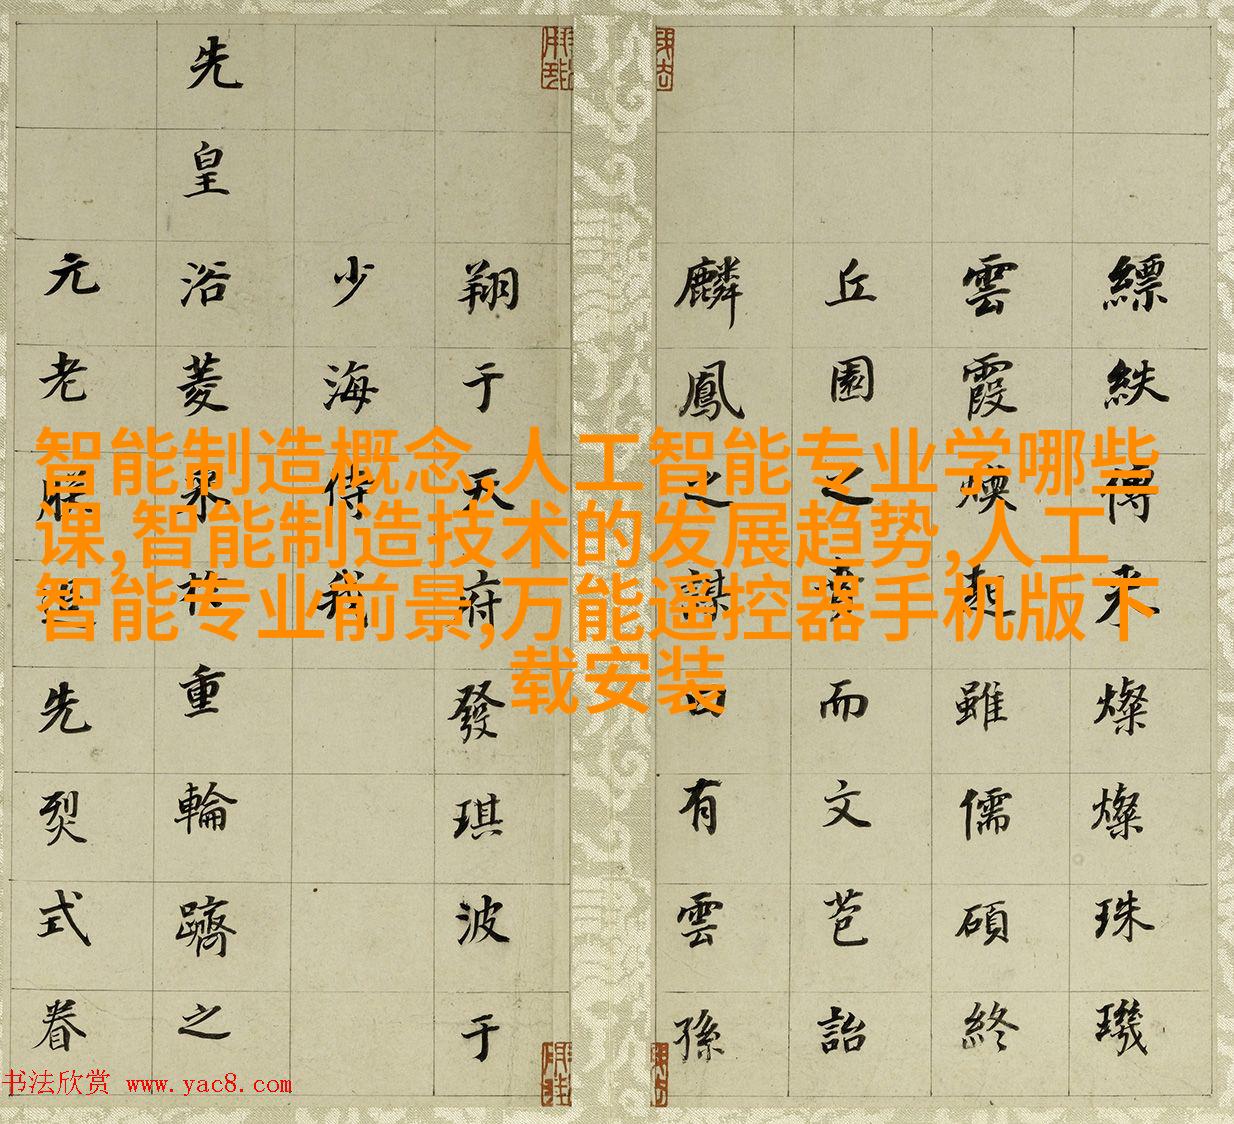 縹紩傳来燦燦珠璣
雲霞煥起雖儒碩終
丘園之而文芭詒
麟鳳之謀有雲孫
翔于天府發琪波于
少海侍我
先皇浴菱泉於重輪躋之
元老先烈式眷
智能制造概念,人工智能专业学哪些
课,智能制造技术的发展趋势,人工
智能专业前景,万能遥控器手机版下
载安装
书法欣赏 www.yac8.com